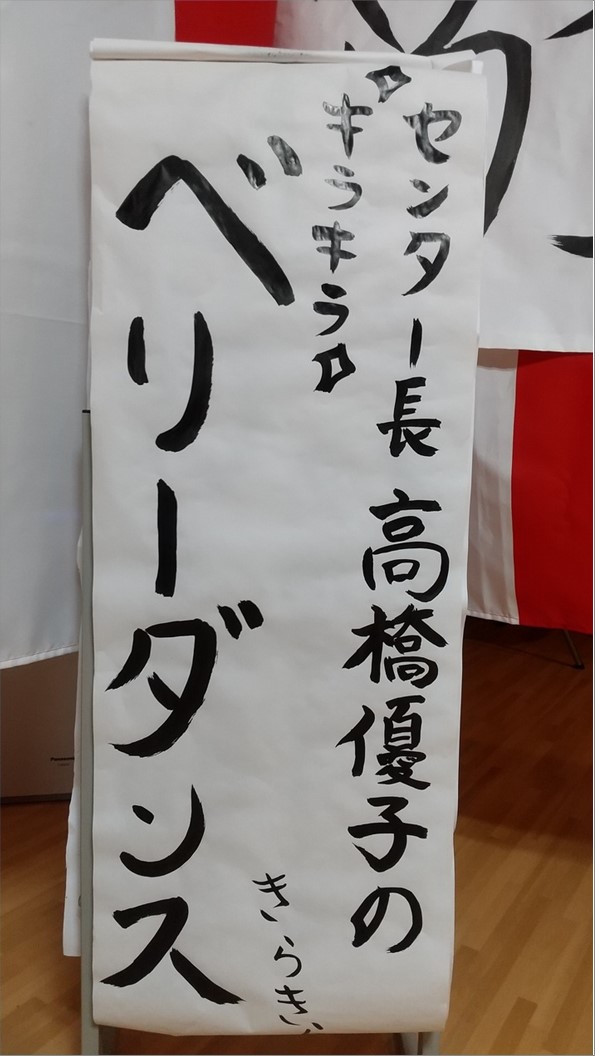 センター長 高橋優子の
キラキラ
ベリーダンス
きらきい